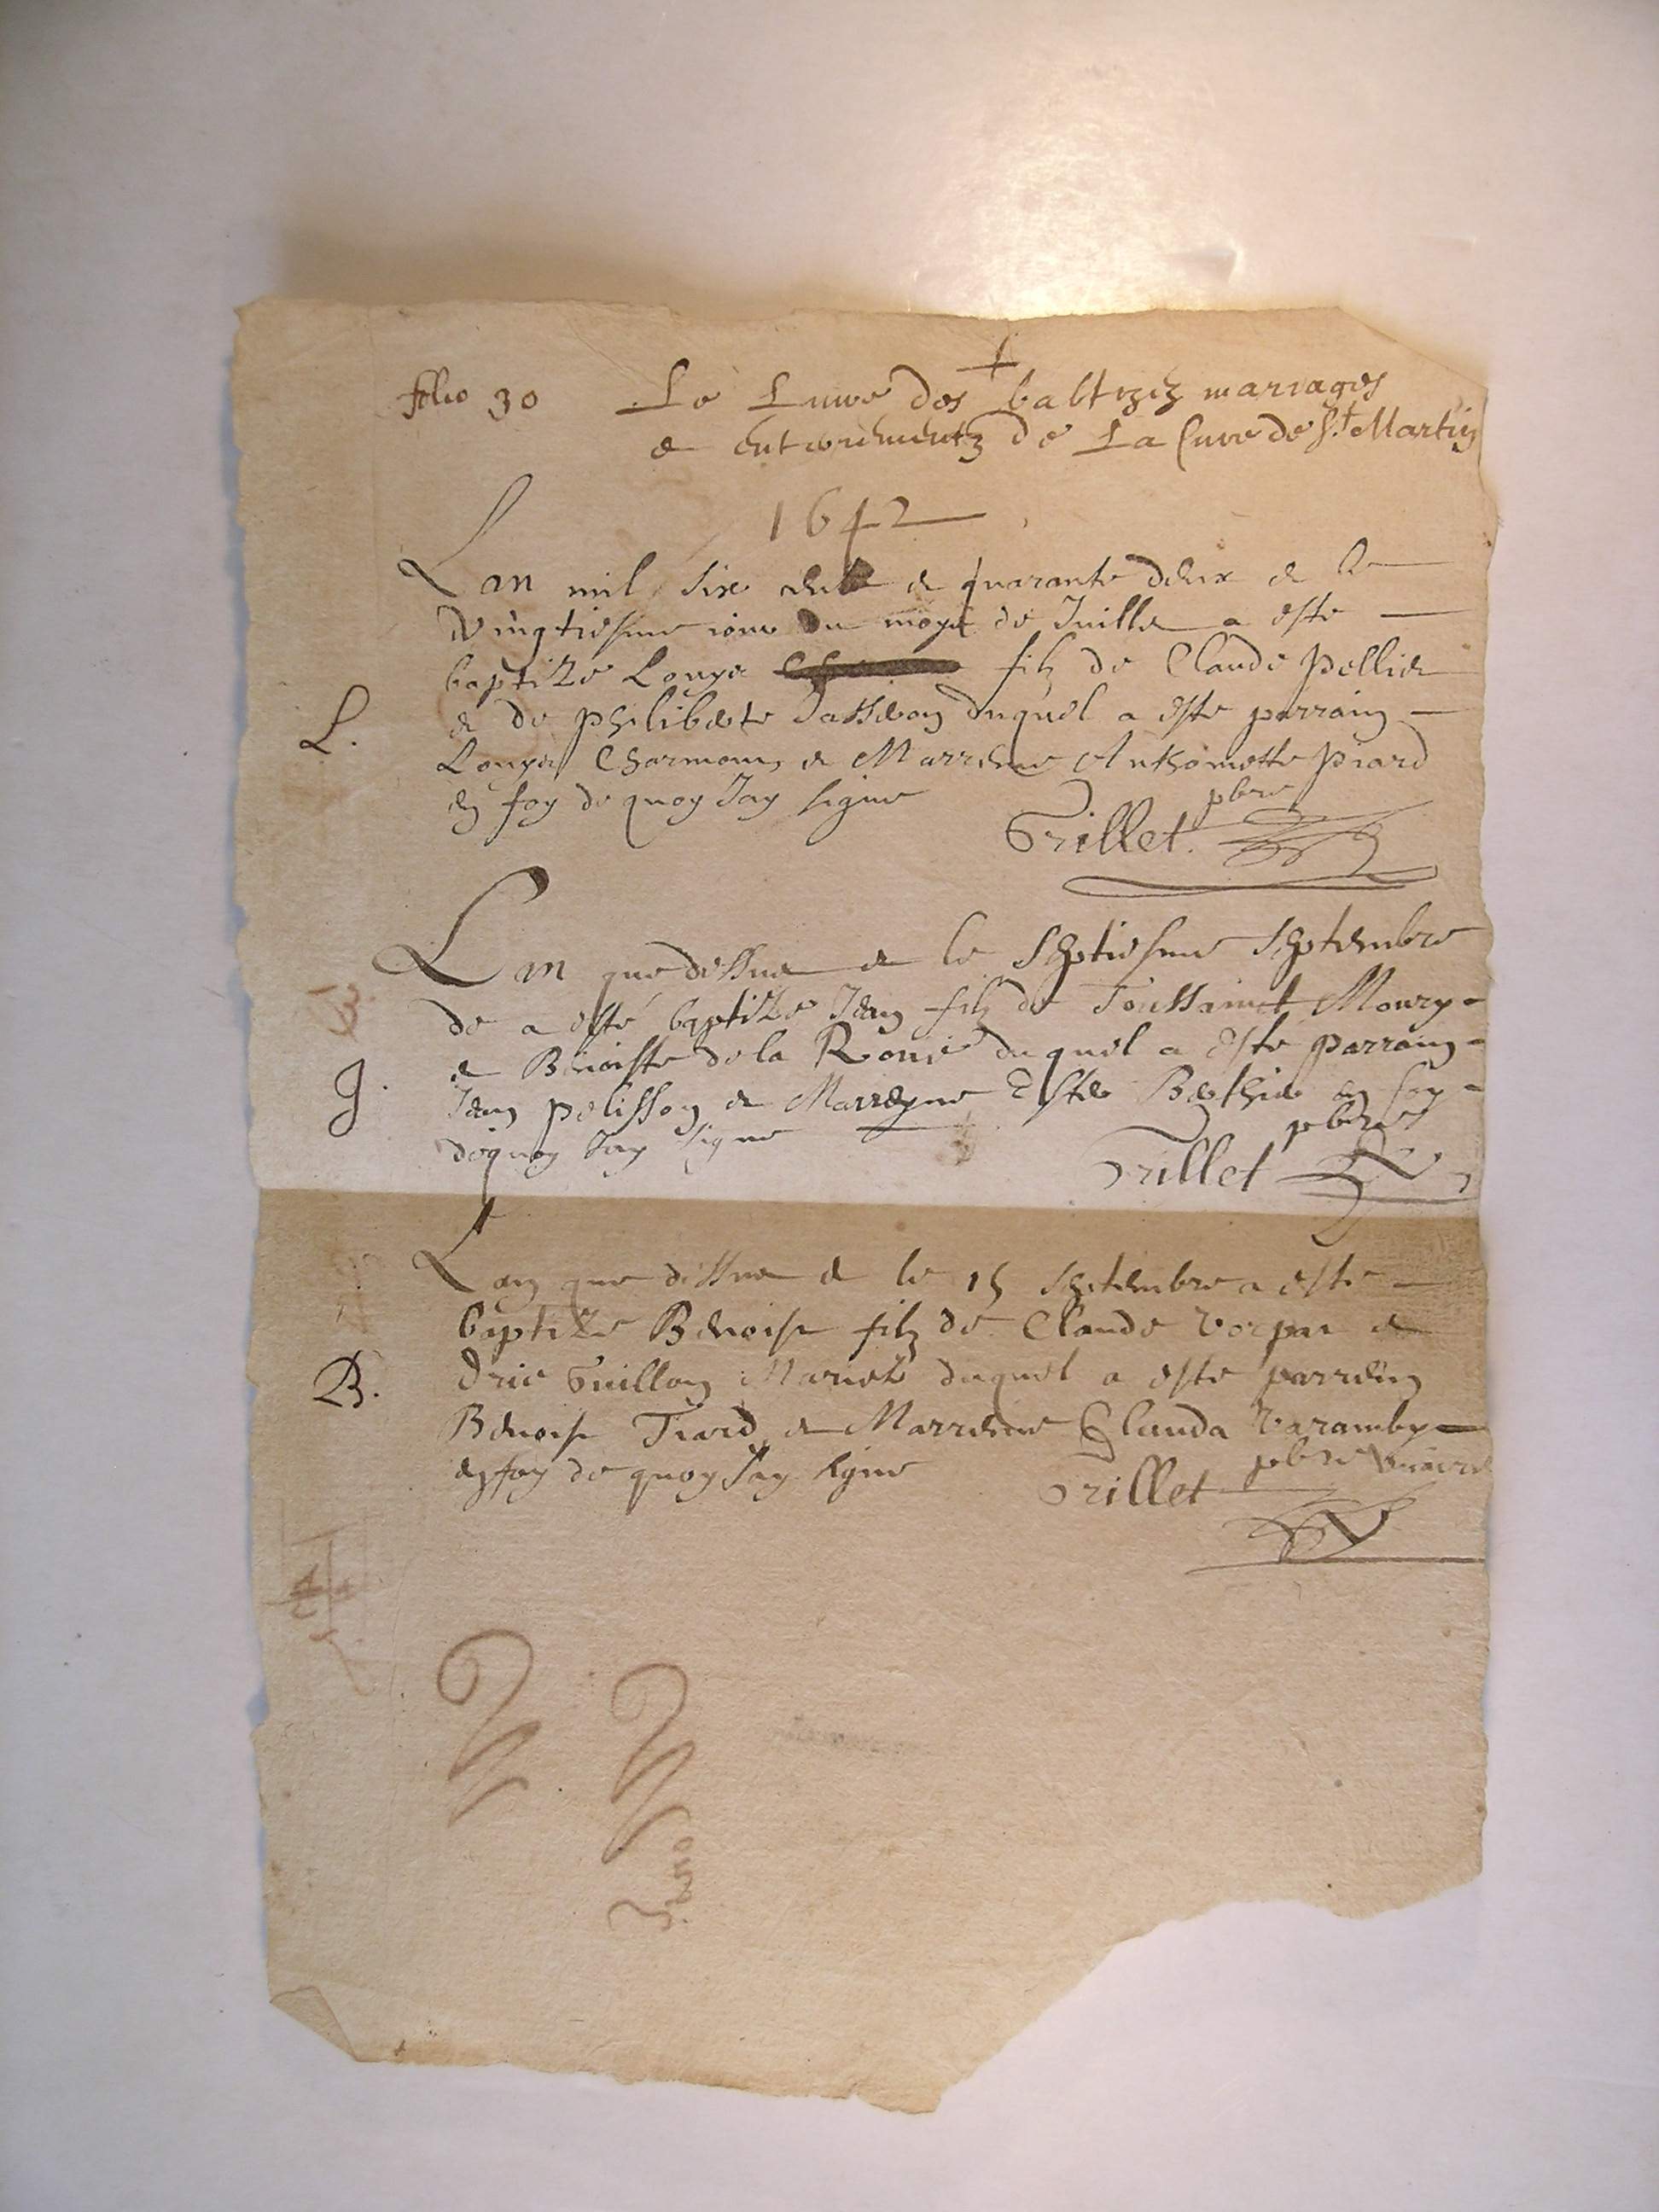 folio 30
Le Livre des babtizez mariages
et enterrementz de La Cure de St Martin
1642
Lan mil six cent et quarante deux et le
vingtiesme iour du moys de Juillet a este
baptize Louys filz de Claude Pellier
L.
et de philiberte duquel a este parrain
Louys Charmont et Marrene Anthoinette Piard
en foy de quoy Jay signe
pbre
Grillet
Lan que dessus et le Septiesme Septembre
de a esté baptize Jean filz de Toussainct Moury
et Benoiste de la Roue duquel a este parrain
J.
Jean pelisson et Marreyne en foy
dequoy Jay signe
pbre
Grillet
Lan que dessus et le 15 Septembre a este
baptize Benoist filz de Claude et
Guillon Mariez duquel a este parrein
B.
Benoist Tiard et Marrene Clauda Varamby
en foy de quoy Jay signe
pbre vicaire
Grillet